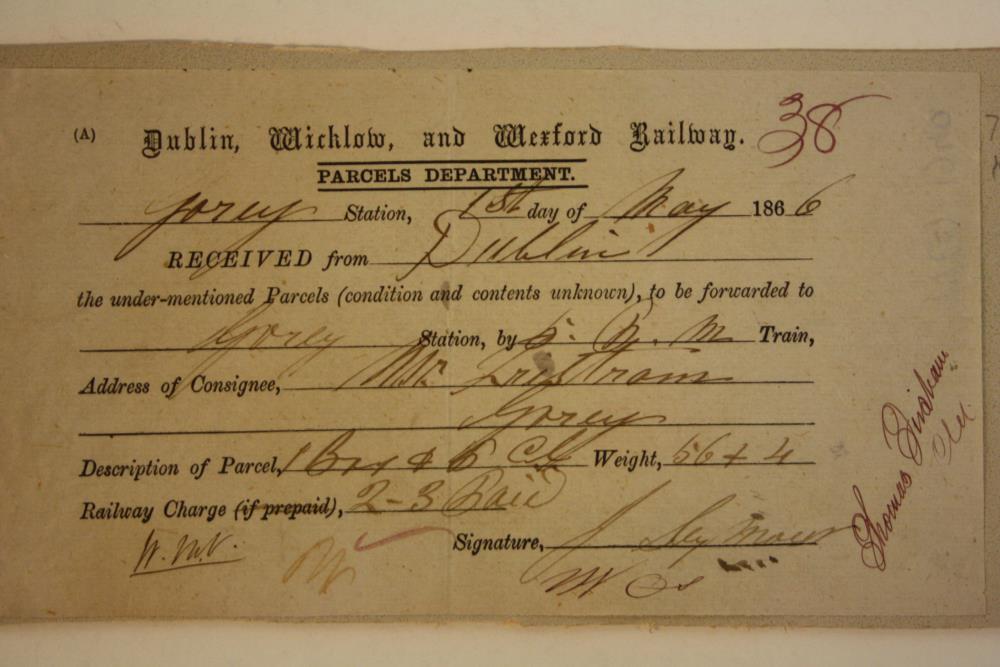 (A) Dublin, Wicklow, and Wexford Railway. 38
PARCELS DEPARTMENT.
Gorey Station, 1st day of May 1866
RECEIVED from Dublin
the under-mentioned Parcels (condition and contents unknown), to be forwarded to
Gorey Station, by M Train,
Address of Consignee, Mr
Gorey
Description of Parcel, 1 Box & Weight, 56 + 4
Railway Charge (if prepaid), 2-3 Paid
Signature, J Seymour
Thomas